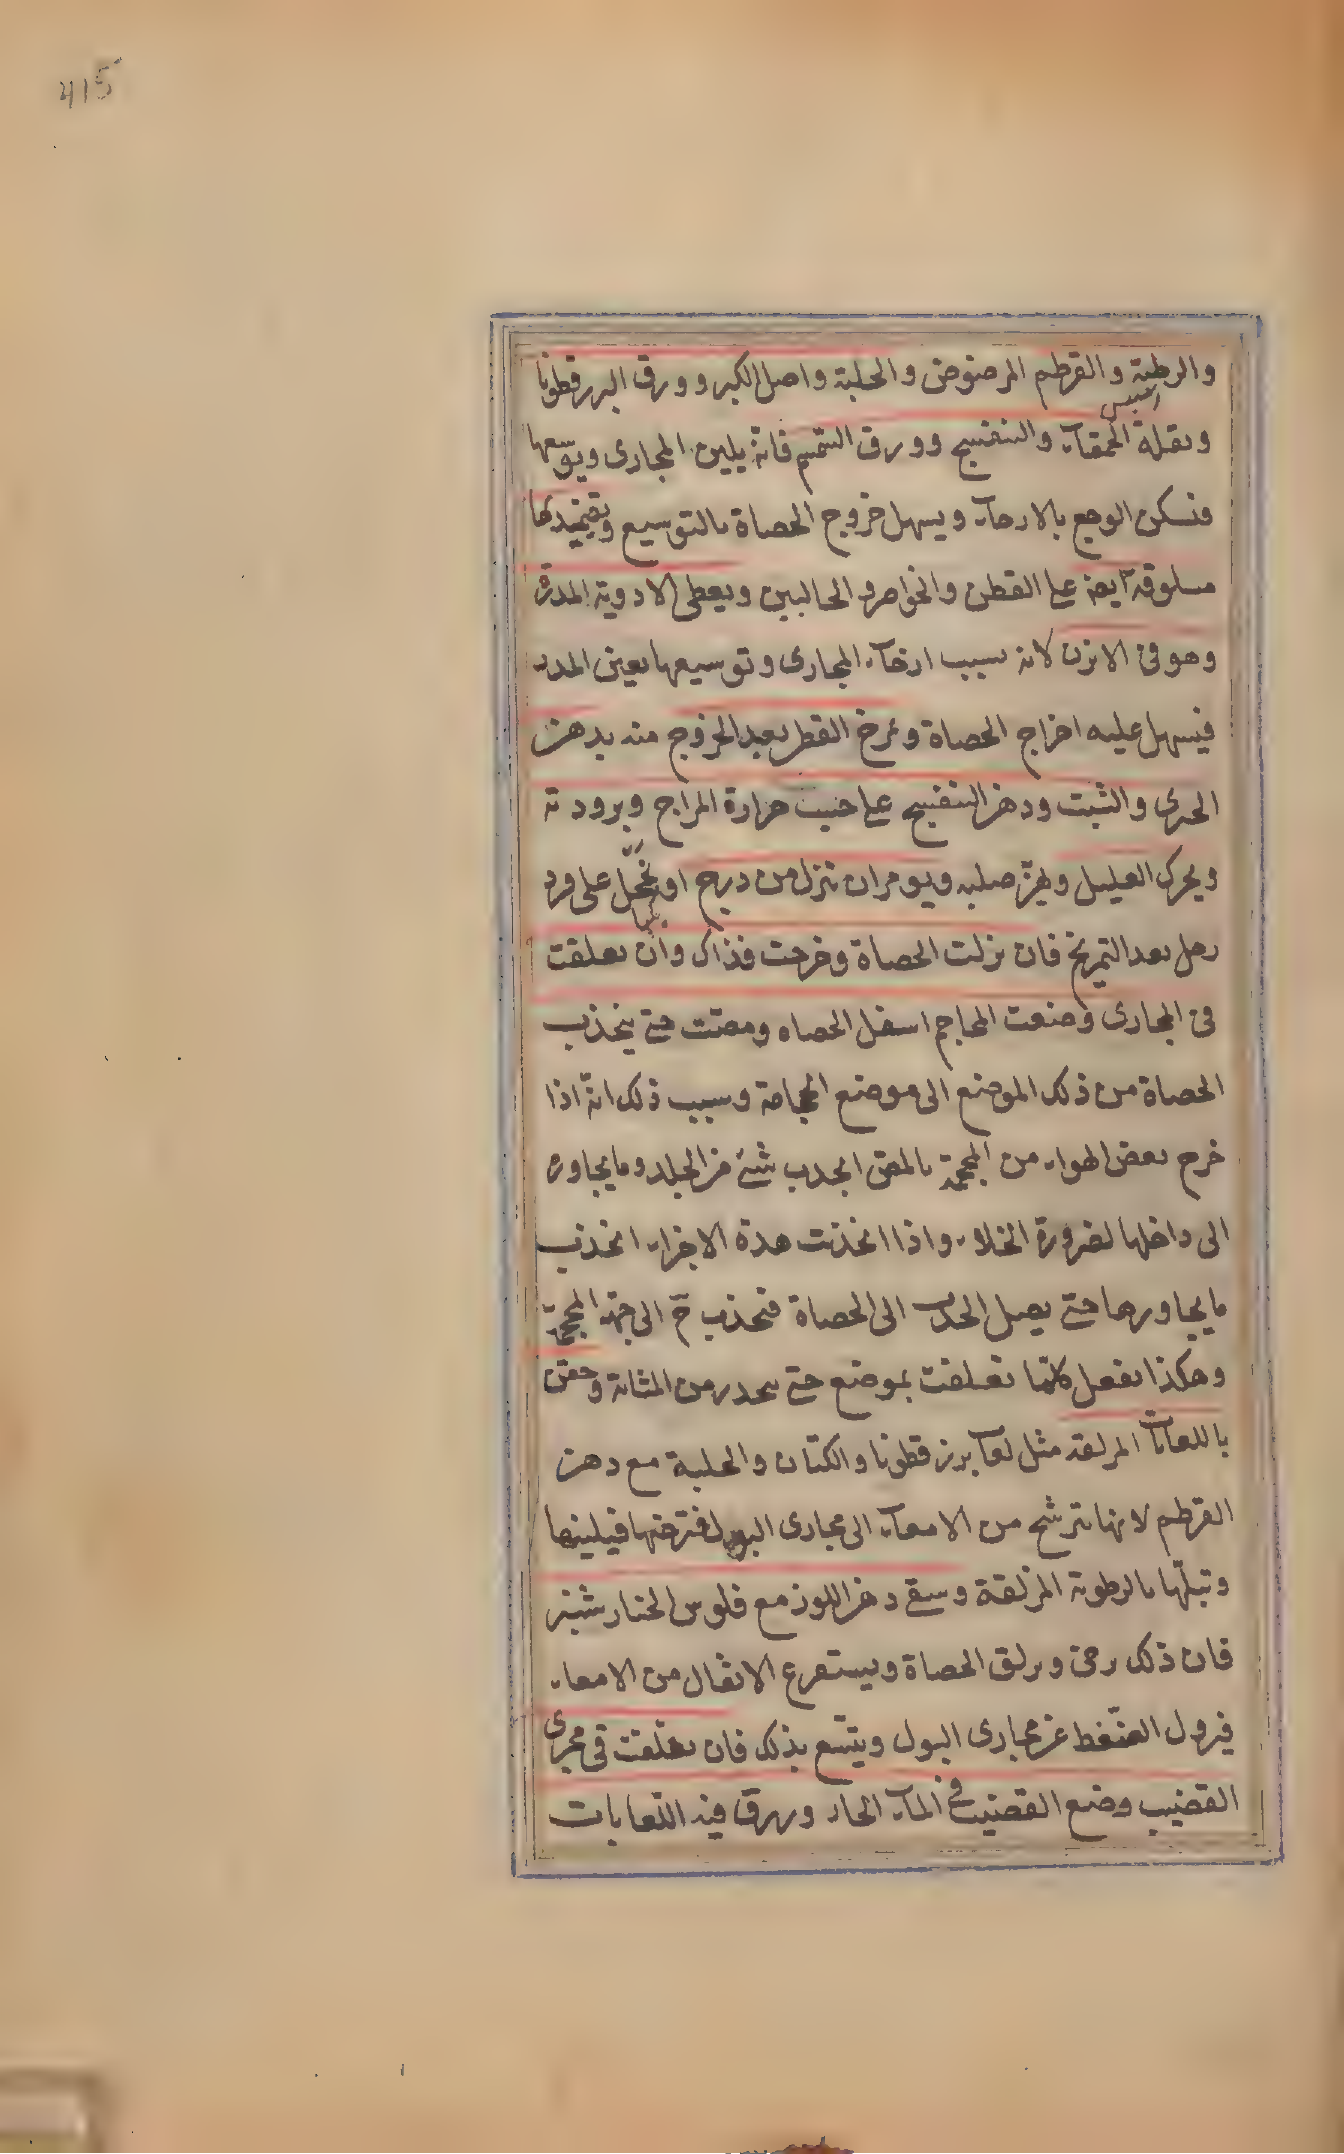 415
والرطبة والقرطم المرضوض والحلبة واصل الكبر وورق البزرقطونا
وبقلة الحمقاء والبنفسج وورق السمسم فانه يلين المجارى ويوسعها
فتسكن الوجع بالارخاء ويسهل خروج الحصاة بالتوسيع وتضميدها
مسلوقة ايضا على القطن والخواصر والحالبين ويعطى الادوية المدرة
وهو فى الابزن لانه بسبب ارخاء المجارى وتوسيعها يعين المدر
فيسهل عليه اخراج الحصاة ومرخ القطن بعد الخروج منه بدهن
الخيرى والشبت ودهن البنفسج على حسب حرارة المزاج وبرودته
ويحرك العليل ويهز صلبه ويومر ان ينزل من درج او يحجل على فرد
رجل بعد التمريخ فان نزلت الحصاة وخرجت فذاك وان تعلقت
فى المجارى وضعت المحاجم اسفل الحصاه ومصت حتى ينجذب
الحصاة من ذلك الموضع الى موضع المحجامة وسبب ذلك انه اذا
خرج بعض الهواء من المحجمة بالمص انجذب شئ من الجلد وما يجاوره
الى داخلها لضرورة الخلاء واذا انجذبت هذه الاجزاء انجذب
ما يجاورها حتى يصل الجذب الى الحصاة فتجذب ح الى جهة المحجمة
وهكذا يفعل كلما تعلقت بموضع حتى ينحدر من المثانة وحقن
باللعابات المزلقة مثل لعاب بزرقطونا والكتان والحلبة مع دهن
القرطم لانها تترشح من الامعاء الى مجارى البول فترخيها فيلينها
وتبلها بالرطوبة المزلقة وسقى دهن اللوز مع فلوس الخيارشنبر
فان ذلك يرخى ويزلق الحصاة ويستفرغ الاثفال من الامعاء
فيزول الضغط عن مجارى البول ويتسع بذلك فان تعلقت فى مجرى
القضيب وضع القضيب فى الماء الحار وزرق فيه اللعابات